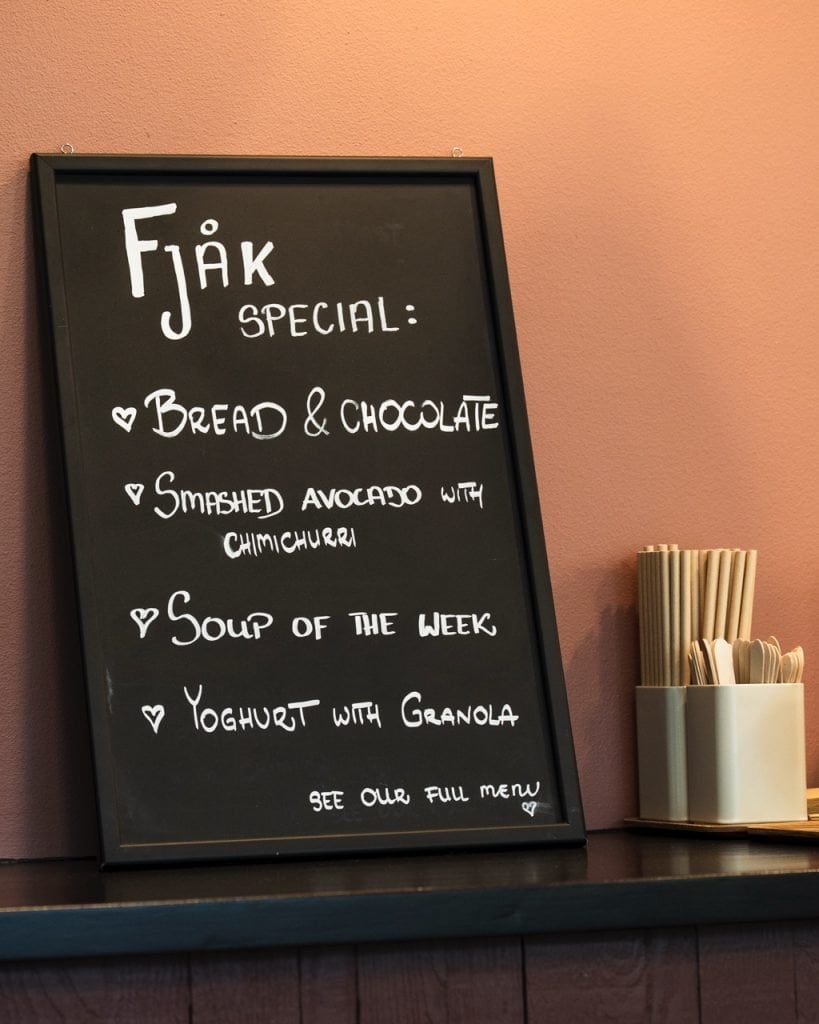 FJÅK
SPECIAL:
♥ BREAD & CHOCOLATE
♥ SMASHED AVOCADO WITH
CHIMICHURRI
♥ SOUP OF THE WEEK
♥ YOGHURT WITH GRANOLA
SEE OUR FULL MENU
♥